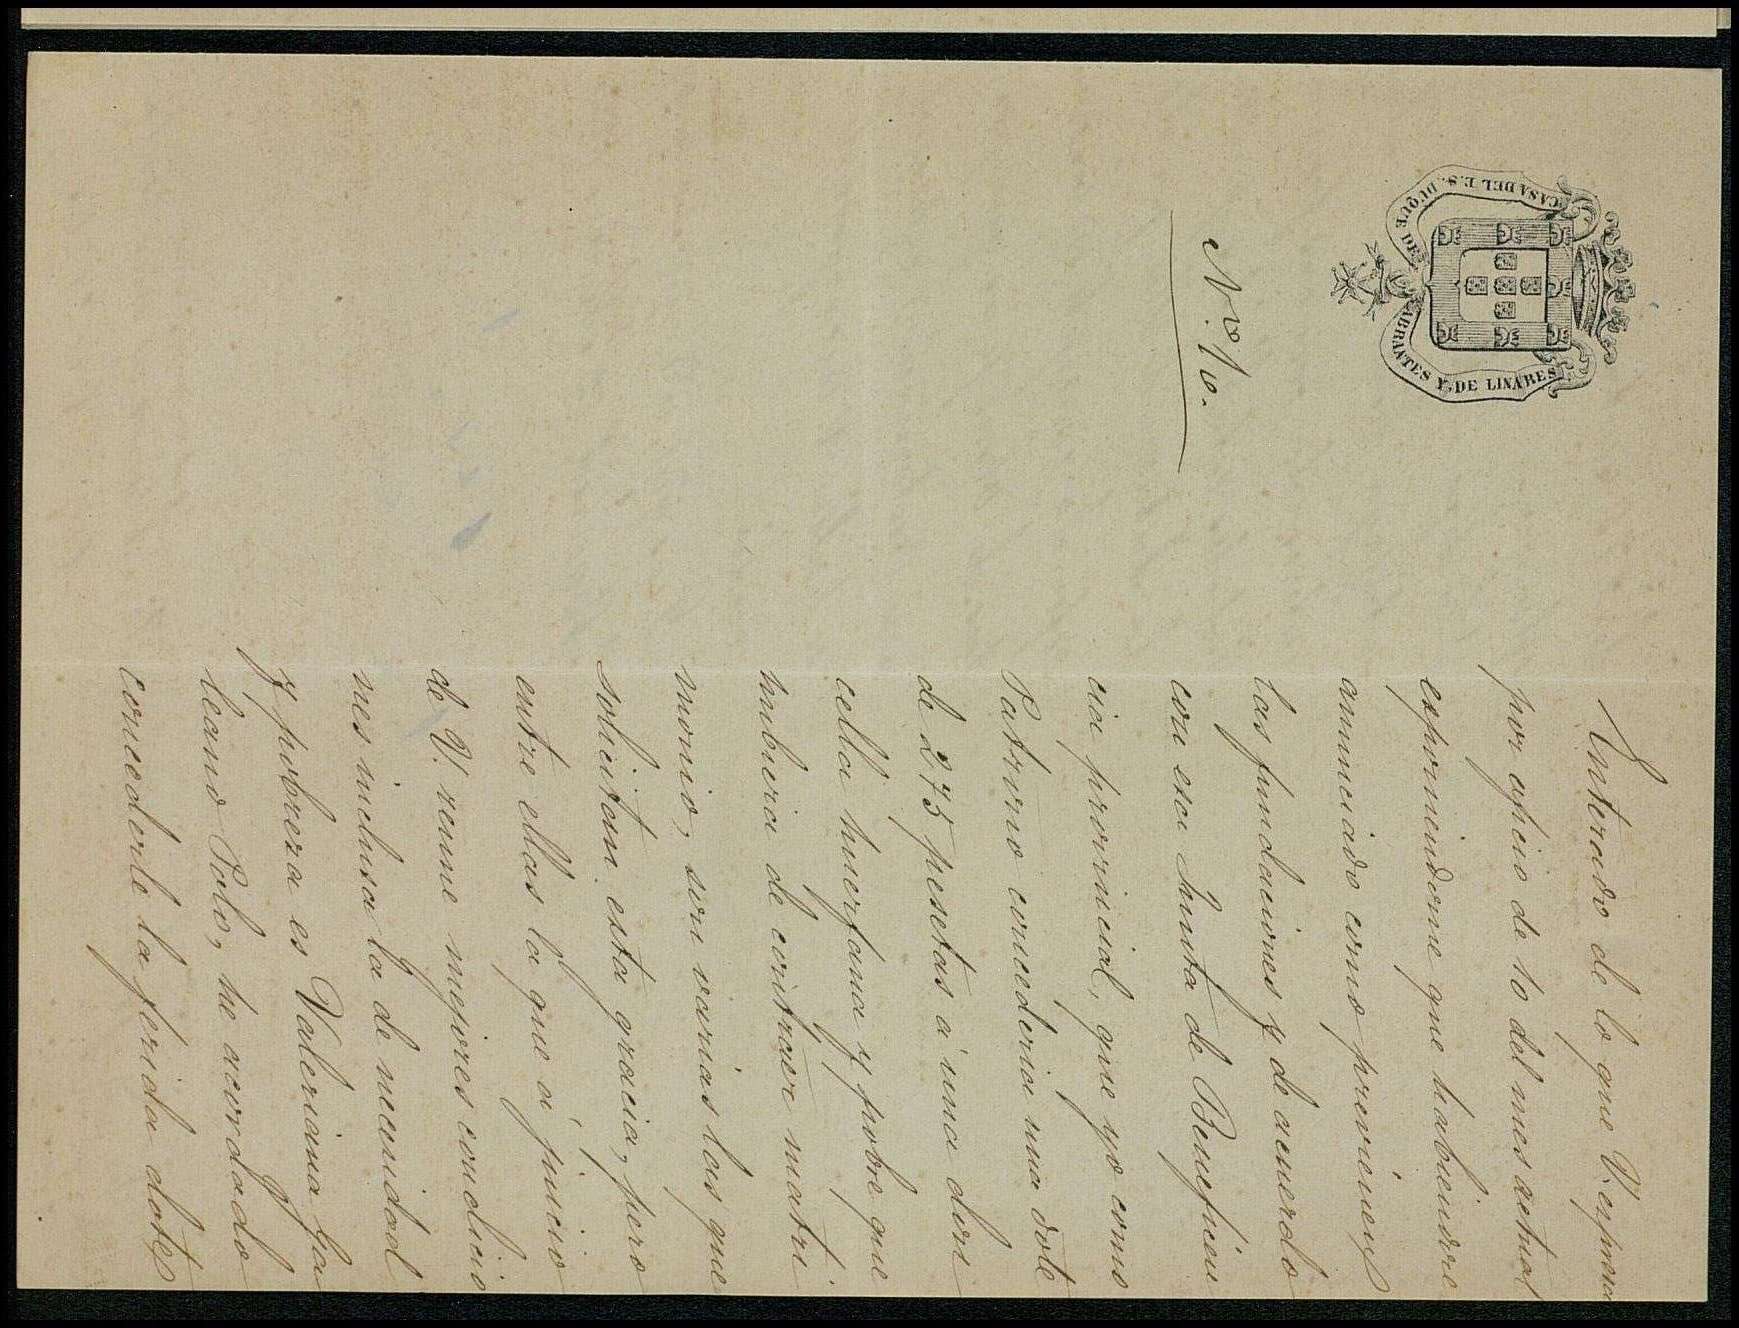 CASA DEL E.S. DUQUE DE ABRANTES Y DE LINARES
N.º 16.
Enterado de lo que V. expone
por oficio de 10 del mes actual
exponiendome que habiendose
anunciado como previenen
las fundaciones y de acuerdo
con esa Junta de Beneficen
cia provincial, que yo como
Patrono concederia una dote
de 275 pesetas á una don
cella huerfana y pobre que
hubiera de contraer matri
monio, son varias las que
solicitan esta gracia, pero
entre ellas la que á juicio
de V. reune mejores condicio
nes inclusa la de necesidad
y pobreza es Valeriana Ga
leano Polo, he acordado
concederle la ferida dote,